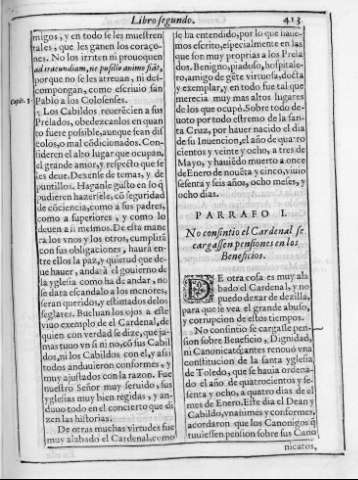 Libro segundo. 413
migos, y en todo se les muestren
tales, que les ganen los coraço-
nes. No los irriten ni prouoquen
ad iracundiam, ne pusillo animo fiāt,
porque no se les atreuan, ni des-
compongan, como escriuio san
Capit. 3 Pablo a los Colosenses.
Los Cabildos reuerēcien a sus
Prelados, obedezcanlos en quan
to fuere posible, aunque sean dis
colos, o mal cōdicionados. Con-
sideren el alto lugar que ocupan,
el grande amor, y respeto que se
les deue. Dexense de temas, y de
puntillos. Haganle gusto en lo q̄
pudieren hazersele, cō seguridad
de cōciencia, como a sus padres,
como a superiores, y como lo
deuen a si mesmos. De esta mane
ra los vnos y los otros, cumplirā
con sus obligaciones, haurà en-
tre ellos la paz, y quietud que de-
ue hauer, andarà el gouierno de
la yglesia como ha de andar, no
se darà escandalo a los menores,
seran queridos, y estimados delos
seglares. Bueluan los ojos a este
viuo exemplo de el Cardenal, de
quien con verdad se dize, que ja-
mas tuuo vn si ni no, cō sus Cabil
dos, ni los Cabildos con el, y assi
todos anduuieron conformes, y
muy ajustados con la razon. Fue
nuestro Señor muy seruido, sus
yglesias muy bien regidas, y an-
duuo todo en el concierto que di
zen las historias.
De otras muchas virtudes fue
muy alabado el Cardenal, como
se ha entendido, por lo que haue-
mos escrito, especialmente en las
que son muy proprias a los Prela
dos. Benigno, piadoso, hospitale-
ro, amigo de gēte virtuosa, docta
y exemplar, y en todo fue tal que
merecia muy mas altos lugares
de los que ocupò. Sobre todo de-
uoto por todo estremo de la san-
ta Cruz, por hauer nacido el dia
de su Inuencion, el año de quatro
cientos y veinte y ocho, a tres de
Mayo, y hauiēdo muerto a once
de Enero de nouēta y cinco, viuio
sesenta y seis años, ocho meses, y
ocho dias.
PARRAFO I.
No consintio el Cardenal se
cargassen pensiones en los
Beneficios.
DE otra cosa es muy ala
bado el Cardenal, y no
puedo dexar de dezilla,
para que se vea el grande abuso,
y corrupcion de estos tiempos.
No consintio se cargasse pen-
sion sobre Beneficio, Dignidad,
ni Canonicato, antes renouò vna
constitucion de la santa yglesia
de Toledo, que se hauia ordena-
do el año de quatrocientos y se-
senta y ocho, a quatro dias de el
mes de Enero. Este dia el Dean y
Cabildo, vnanimes y conformes,
acordaron que los Canonigos q̄
tuuiessen pension sobre sus Cano
nicatos,